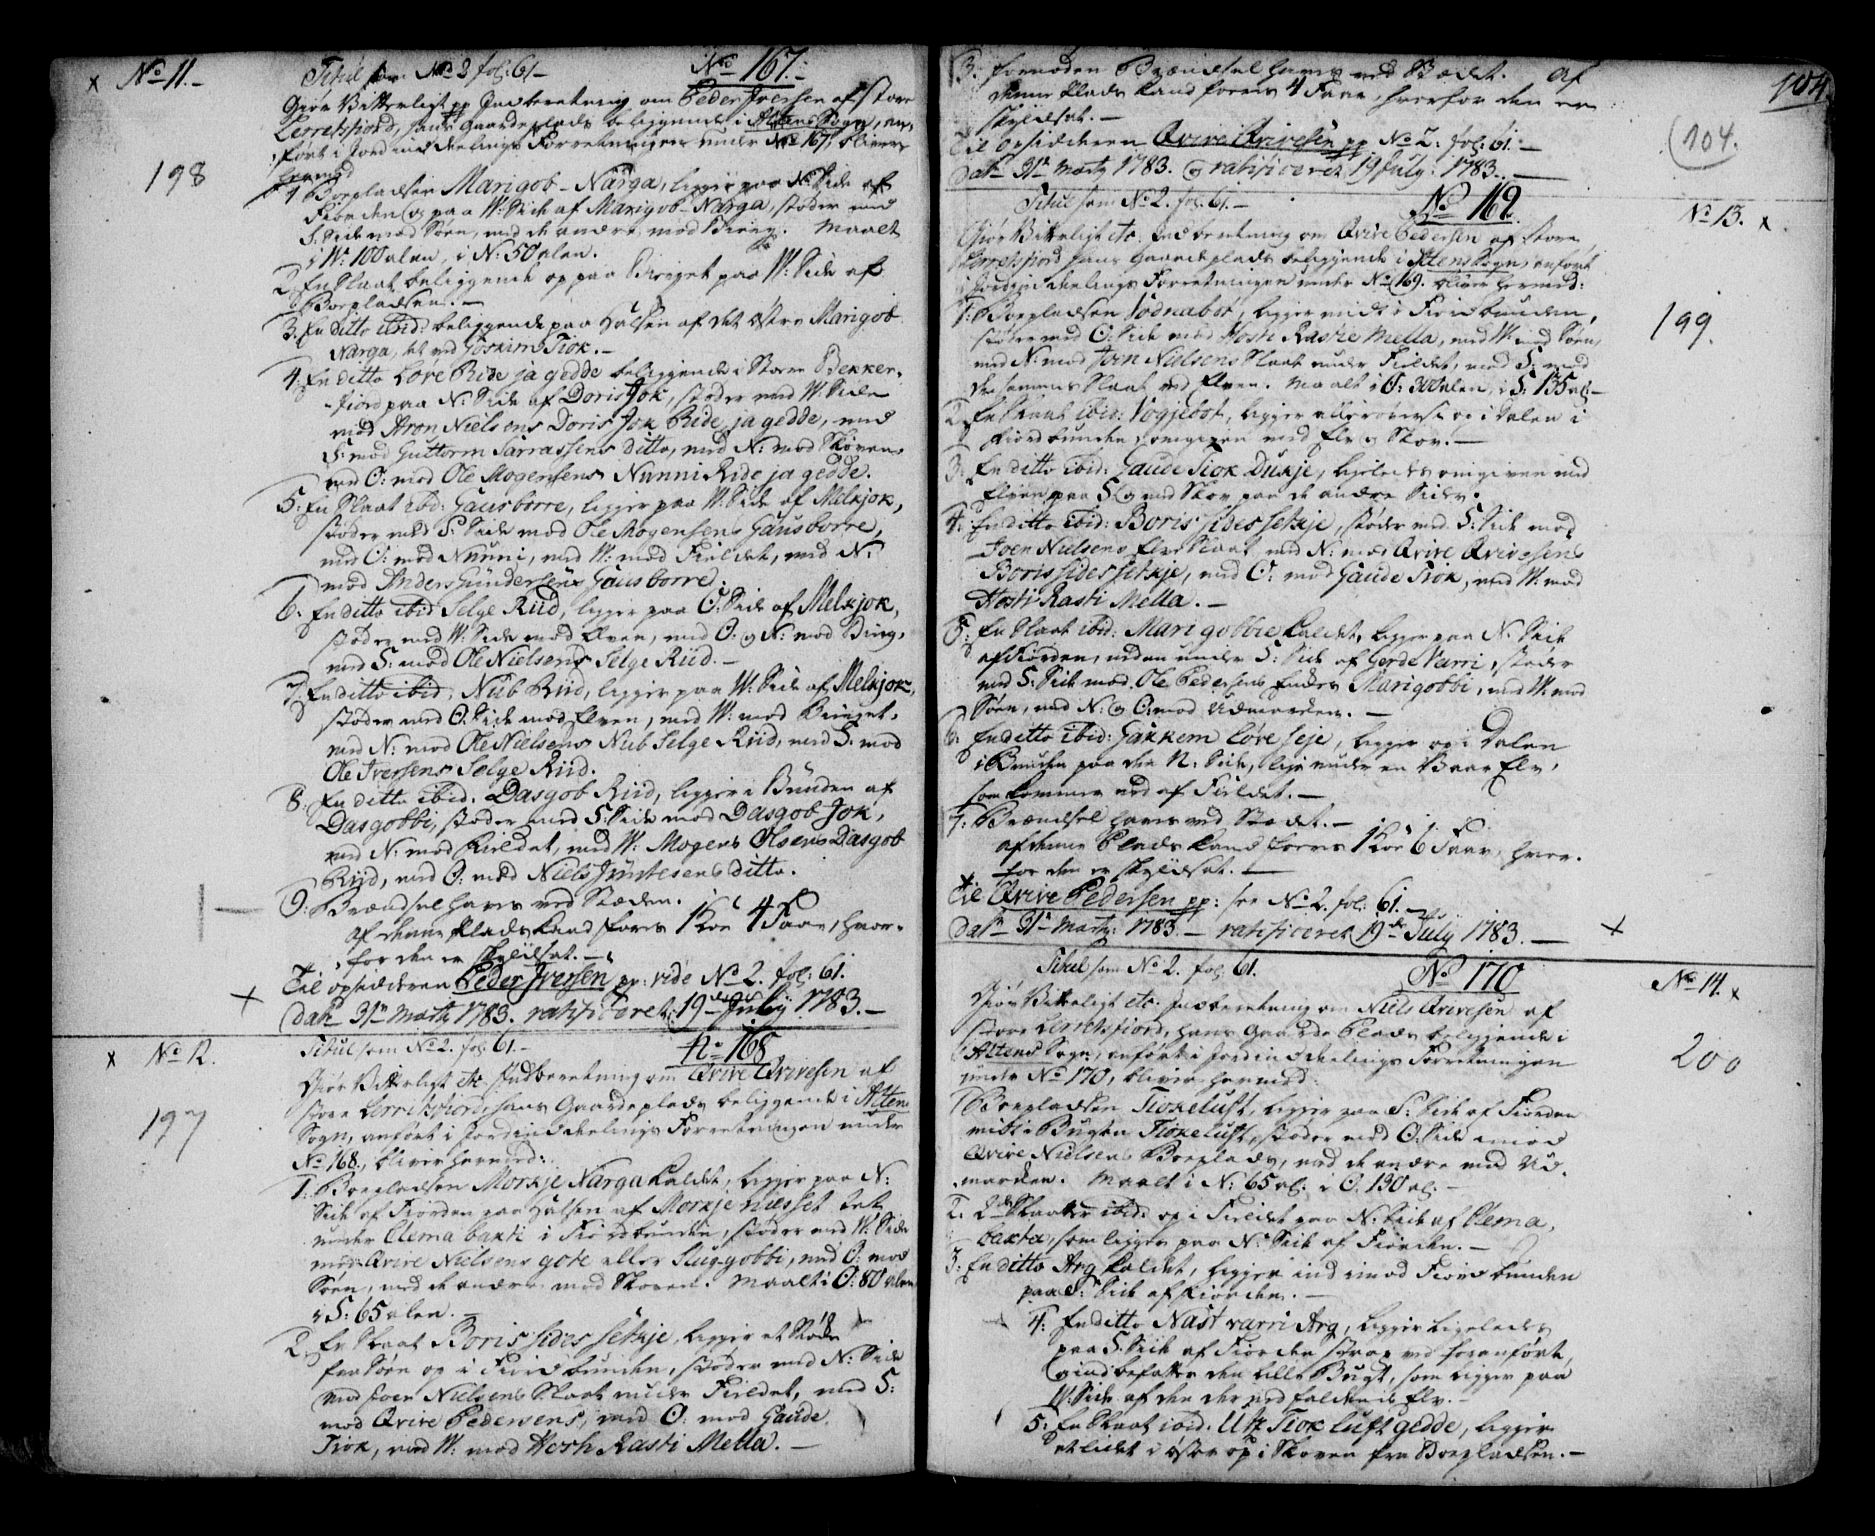 x No 11.-
198
Titul som No 2 fol: 61- No 167.-
Giør Vitterligt pp Indberetning om Peder Iversen af store
Lerrekfiord, hans Gaardeplads beliggende i Altens Sogn, an-
ført i Jordinddeelings Forretningen under No 167, bliver
hermed
1 Boepladsen Marigob-Narga, ligger paa N: Side af
Fiorden og paa W: Side af Marigob-Narga, støder med
S. Side mod Søen, med de andre mod Bierg. Maalt
i W: 100 alen, i N: 50 alen.
2 En Slaat beliggende op paa Bierget paa W: Side af
Boepladsen.-
3. En ditto ibid: beliggende paa Halsen af det østre Marigob
Narga, tet ved Goskim Tiok.-
4. En ditto Løve Ride ja gedde beliggende i Store Bekker-
fiord paa N: Side af Doris Jok, støder med W: Side
mod Aron Nielsens Doris Jok Ride ja gedde, med
S: mod Guttorm Sarrassens ditto, med N: mod Skoven,
med O: mod Ole Mogensens Nunni Ride ja gedde.
5: En Slaat ibid: Gausborre, ligger paa W: Side af Melkjok,
støder med S: Side mod Ole Mogensens Gausborre,
med O: mod Nunni, med W: mod Fieldet, med N:
mod Anders Gundersens Gausborre.
6: En ditto ibid Selge Riid, ligger paa O: Side af Melkjok,
støder med W: Side mod Elven, med O: og N: mod Bierg,
med S: mod Ole Nielsens Selge Riid.-
7. En ditto ibid: Nub Riid, ligger paa W: Side af Melkjok,
støder med O: Side mod Elven, med W: mod Bierget,
med N: mod Ole Nielsens Nub Selge Riid, med S: mod
Ole Iversens Selge Riid.
8: En ditto ibid. Dasgob Riid, ligger i Bunden af
Dasgobbi, støder med S: Side mod Dasgob Jok,
med N: mod Fieldet, med W: Mogens Olsens Dasgob
Riid, med O: mod Niels Justesens ditto.
9: Brændsel haves ved Stæden.
af denne Plads kand føres 1 Koe 4 Faar, hvor-
for den er skyldsat.-
Til opsidderen Peder Iversen pp: vide No 2. fol: 61.
Dat: 31te Marti 1783. ratificeret 19de July 1783.-
x No 12.
197
Titul som No 2. fol: 61.- No 168
Giør Vitterligt etc. Indberetning om Qvive Qvivesen af
store Lerrikfiord, hans Gaardeplads beliggende i Altens
Sogn, anført i Jordinddeelings Forretningen under
No 168, bliver hermed:
1: Boepladsen Morkje Narga kaldet, ligger paa N:
Side af Fiorden paa Halsen af Morkje næsset tet
under Clema bakti i Fiordbunden, støder med W: Side
mod Qvive Nielsens gote eller Sluggobbi, med O: mod
Søen, med de andre mod Skoven. Maalt i O: 80 alen
i S: 65 alen.-
2. En Slaat Boris sides setkje, ligger et støkke
fra Søen op i Fiordbunden, støder med N: Side
mod Joen Nielsens Slaat under Fieldet, med S:
mod Qvive Pedersens, med O: mod Gaude
Tiok, med W: mod Hosti Rasti Mella.-
104
104.
3. fornøden Brændsel haves ved Stædet. af
denne Plads kand føres 4 Faar, hvorfor den er
skyldsat.-
Til opsidderen Qvive Qvivesen pp No 2: fol: 61.-
Dat: 31te Marty 1783. og ratificeret 19 July: 1783.-
Titul som No 2. fol: 61.- No 169
No 13. x
199.
Giør Vitterligt etc. Indberetning om Qvive Pedersen af store
Lerrekfiord, hans Gaardeplads beliggende i Altens Sogn, anført
i Jordinddeelings Forretningen under No 169. bliver hermed:
1. Boepladsen Vodnabot, ligger midt i Fiordbunden,
støder med O: Side mod Hosti Rastie Mella, med W: mod Søen,
med N: mod Joen Nielsens Slaat under Fieldet, med S: mod
dessammes Slaat ved Elven. Maalt i O: 300 alen, i S: 135 al:-
2 En Slaat ibid: Vogjebot, ligger allerøverst op i Dalen i
Fiordbunden, omgiven med Elv og Skov.-
3: En ditto ibid: Gaude Tiok Dukje, ligeledes omgiven med
Elven paa S og med Skov paa de andre Sider.
4: En ditto ibid: Boris sides setkje, støder med S: Side mod
Joen Nielsens Elve Slaat, med N: mod Qvive Qvivesens
Boris sides setkje, med O: mod Gaude Tiok, med W: mod
Hosti Rasti Mella.-
5: En Slaat ibid: Marigobbie kaldet, ligger paa N: Side
af Fiorden, neden under S: Side af Gerde Varri, støder
med S: Side mod Ole Pedersens Enden Marigobbi, med W: mod
Søen, med N: og O: mod Udmarken.-
6: En ditto ibid: Gakkem Løve seje, ligger op i Dalen
i Brinken paa den N: Side, lige under en Baar Elv,
som kommer ned af Fieldet.-
7: Brændsel haves ved Stædet.-
af denne Plads kand føres 1 Koe 6 Faar, hvor-
for den er skyldsat.-
Til Qvive Pedersen pp: see No 2. fol: 61.-
Dat: 31te Marty: 1783.- ratificeret 19de July 1783.- x
Titul som No 2. fol: 61. No 170
No 14. x
200
Giør Vitterligt etc: Indberetning om Niels Qvivesen af
store Lerrekfiord, hans Gaarde Plads beliggende i
Altens Sogn, anført i Jordinddeelings Forretningen
under No 170, bliver hermed:
1 Boepladsen Tiokeluft, ligger paa S: Side af Fiorden
midt i Bugten Tiokeluft, støder med O: Side imod
Qvive Nielsens Boeplads, med de andre mod Ud-
marken. Maalt i N: 65 al: i O. 130 al:-
2. 2de Slaatter ibid: op i Fieldet paa N: Side af Clema
bakta, som ligger paa N: Side af Fiorden.-
3: En ditto Arg kaldet, ligger ind imod Fiord bunden
paa S: Side af Fiorden.-
4: En ditto Nast varri Arg, ligger ligeledes
paa S: Side af Fiorden strax ved foranført,
og indbefatter den lille Bugt, som ligger paa
W: Side af den der nedfaldende Elv.-
5: En Slaat ibid. Utz Tiok luft gedde, ligger
et lidet i øster op i Skoven fra Boepladsen.-